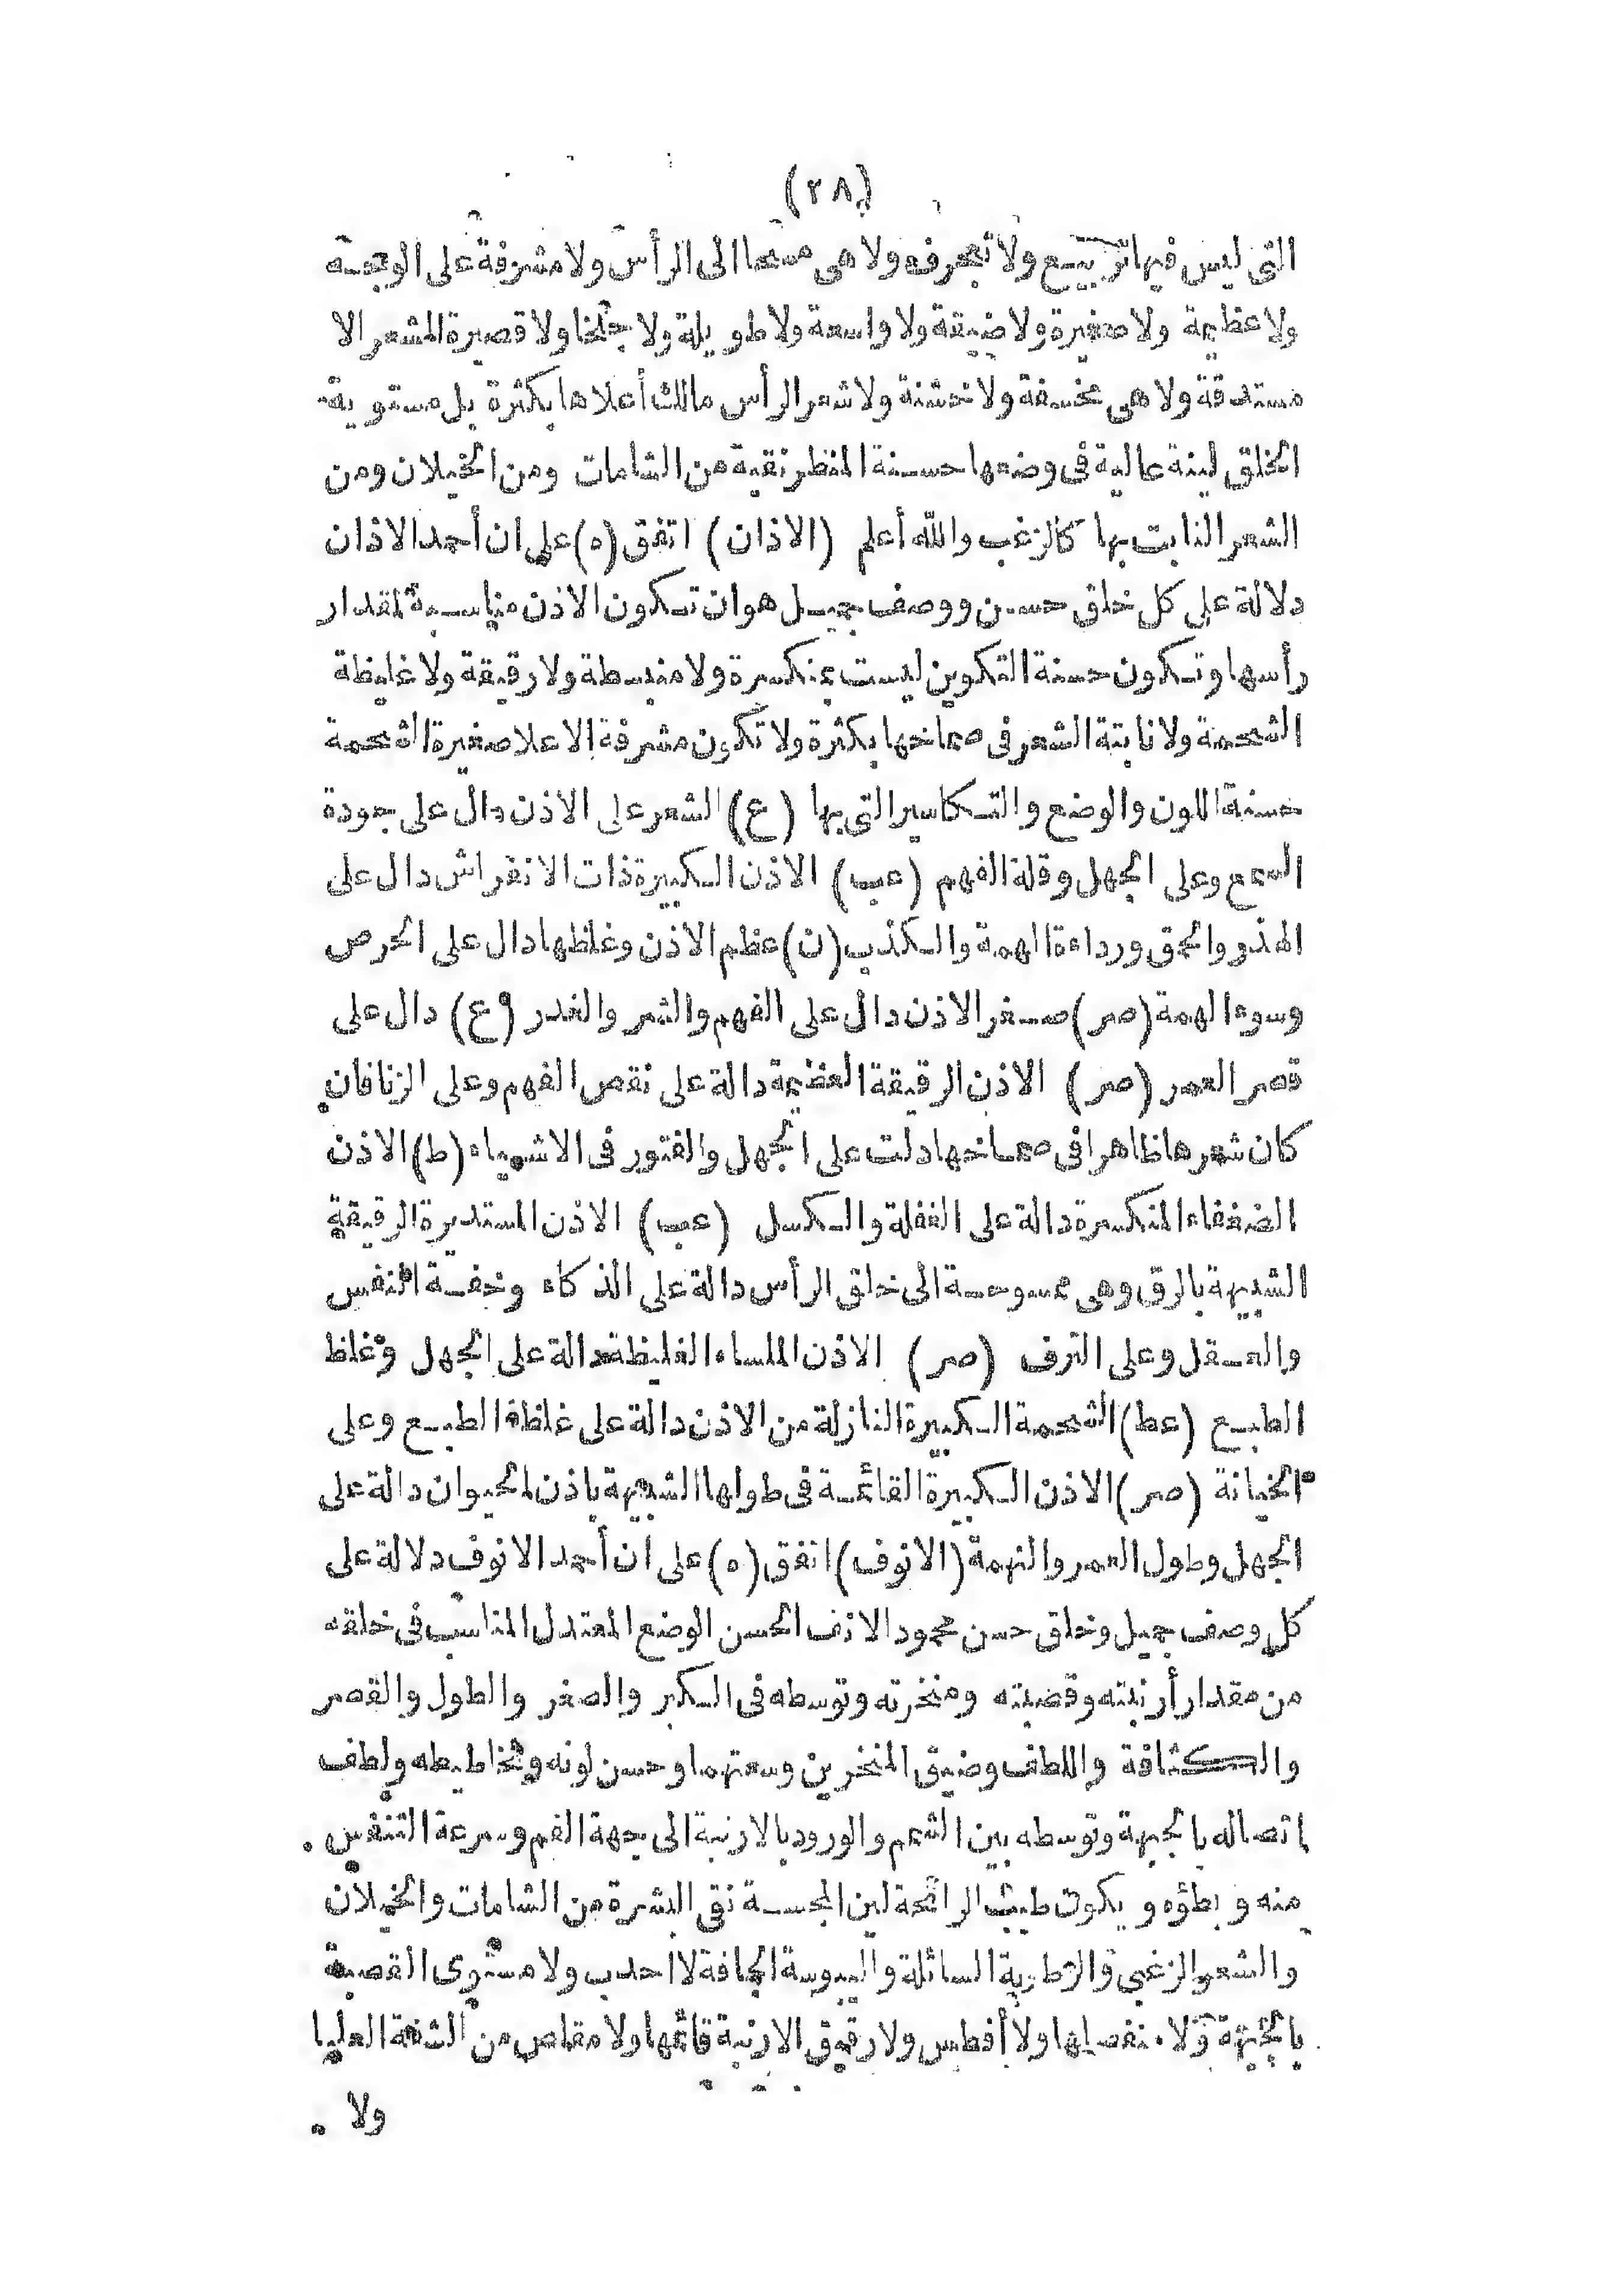 (٢٨)
التى ليس فيها تربيع ولا تجرفه ولا هى مسحا الى الرأس ولا مشرفة على الوجه
ولا عظيمة ولا صغيرة ولا ضيقة ولا واسعة ولا طويلة ولا جلخا ولا قصيرة الشعر الا
مستدقة ولا هى مخسفة ولا خشنة ولا شعر الرأس مالك أعلاها بكثرة بل مستوية
الخلق لينة عالية فى وضعها حسنة المنظر نقية من الشامات ومن الخيلان ومن
الشعر النابت بها كالزغب والله أعلم (الاذان) اتفق (ه) على ان أحمد الاذان
دلالة على كل خلق حسن ووصف جميل هو ان تكون الاذن مناسبة لمقدار
رأسها وتكون حسنة التكوين ليست بمنكسرة ولا منبسطة ولا رقيقة ولا غليظة
الشحمة ولا نابتة الشعر فى صماخها بكثرة ولا تكون مشرفة الاعلا صغيرة الشحمة
حسنة اللون والوضع والتكاسير التى بها (ع) الشعر على الاذن دال على جودة
السمع وعلى الجهل وقلة الفهم (عب) الاذن الكبيرة ذات الانفراش دال على
الهذر والحمق ورداءة الهمة والكذب (ن) عظم الاذن وغلظها دال على الحرص
وسوء الهمة (صر) صغر الاذن دال على الفهم والشر والغدر (ع) دال على
قصر العمر (صر) الاذن الرقيقة العظيمة دالة على نقص الفهم وعلى الزنا فان
كان شعرها ظاهرا فى صماخها دلت على الجهل والفتور فى الاشياء (ط) الاذن
الضغفاء المنكسرة دالة على الغفلة والكسل (عب) الاذن المستديرة الرقيقة
الشبيهة بالرق وهى ممسوحة الى خلق الرأس دالة على الذكاء وخفة النفس
والعقل وعلى الترف (صر) الاذن الملساء الغليظة دالة على الجهل وغلظ
الطبع (عط) الشحمة الكبيرة النازلة من الاذن دالة على غلظة الطبع وعلى
الخيانة (صر) الاذن الكبيرة القائمة فى طولها الشبيهة باذن الحيوان دالة على
الجهل وطول العمر والنهمة (الانوف) اتفق (ه) على ان أحمد الانوف دلالة على
كل وصف جميل وخلق حسن محمود الانف الحسن الوضع المعتدل المناسب فى خلقه
من مقدار أرنبته وقصبته ومنخرته وتوسطه فى الكبر والصغر والطول والقصر
والكثافة واللطف وضيق المنخرين وسعتهما وحسن لونه وتخاطيطه ولطف
اتصاله بالجبهة وتوسطه بين الشمم والورود بالارنبة الى جهة الفم وسرعة التنفس
منه وبطؤه ويكون طيب الرائحة لين المجسة نقى البشرة من الشامات والخيلان
والشعر الزغبى والرطوبة السائلة واليبوسة الجافة لا احدب ولا مستوى القصبة
بالجبهة ولا منفصلها ولا أفطس ولا رقيق الارنبة قائمها ولا مقلص من الشفة العليا
ولا